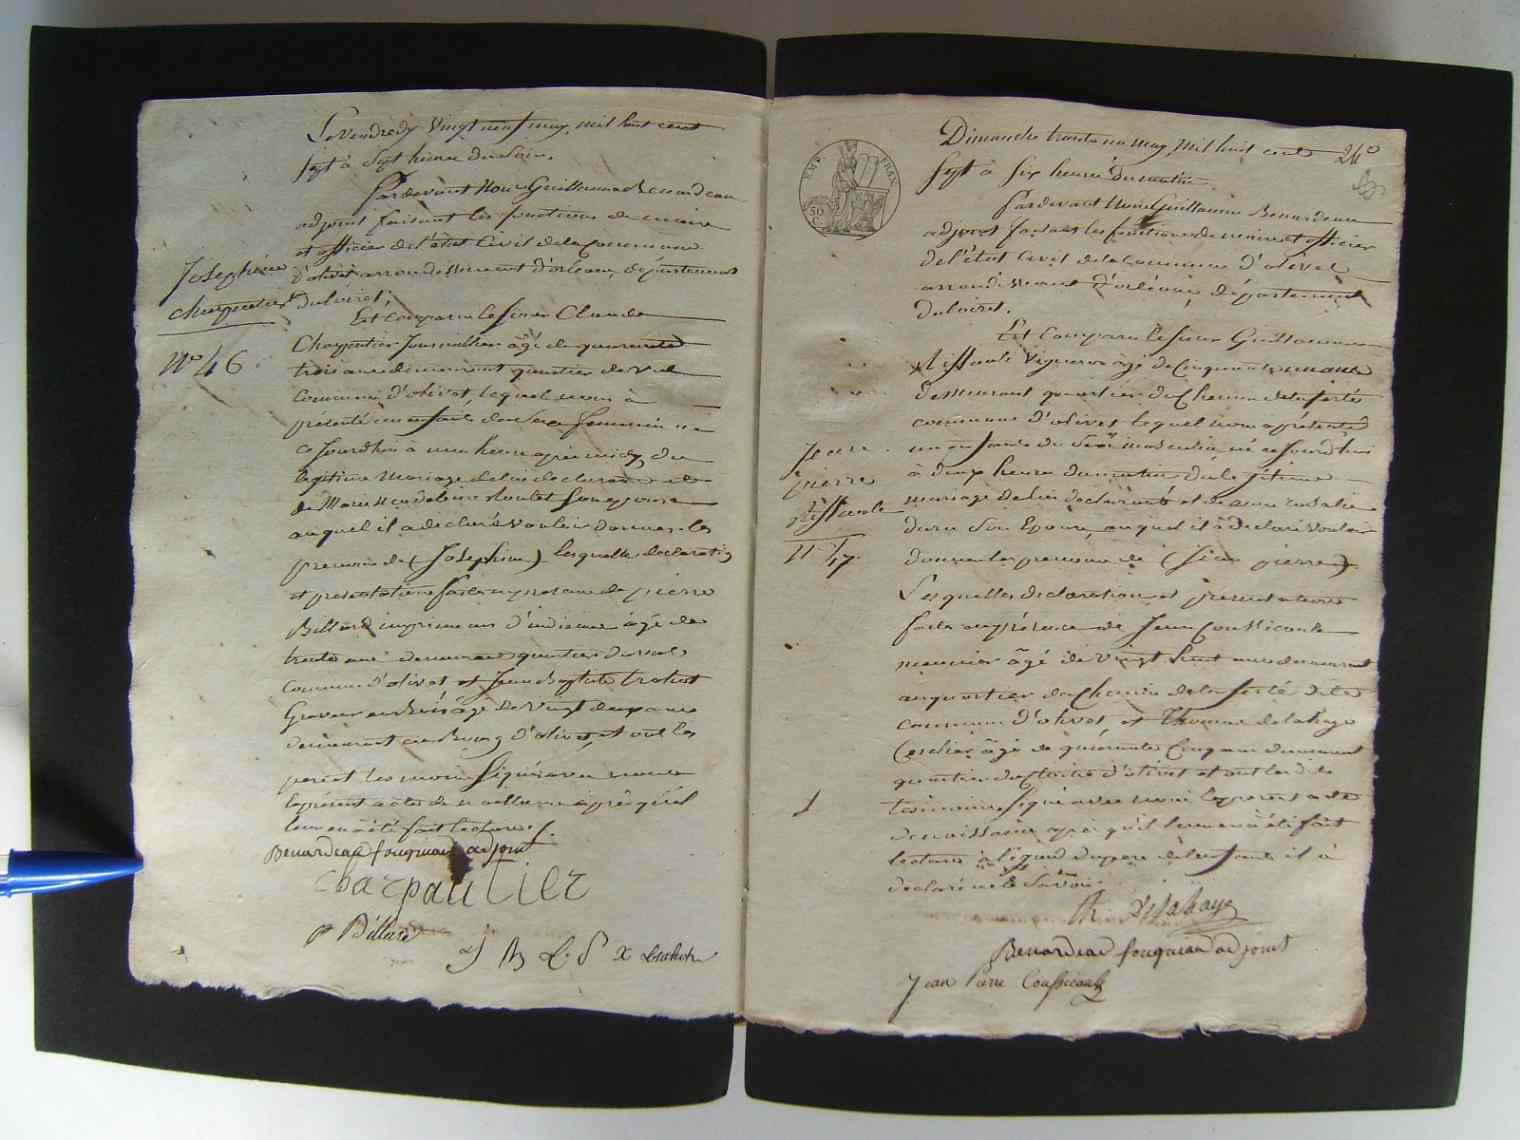 Josephine
charpentier
N.º 46
Le Vendredy Vingt neuf may, mil huit cent
sept à Sept heure du Soir.
Pardevant Nous Guillaume Benardeau
adjoint faisant les fonctions de maire
et officier de l'état Civil de la Commune
d'olivet arrondissement d'orléans, département
du loiret,
Est comparu le sieur Claude
Charpentier Journallier âgé de quarente
trois ans demeurant quartier de Val
Commune d'olivet, lequel nous à
présenté un enfant du Sexe feminin né
ce Jourdhui à une heure apres midy, du
legitime mariage de lui declarant et
de Marie Magdeleine son epouse
auquel il a declaré vouloir donner les
prenoms de (Josephine) lesquelles declaration
et présentation faites en presence de pierre
Billard imprimeur d'indienne âgé de
trente ans demeurant quartier du val
Commune d'olivet et Jean Baptiste
Graveur en bois âgé de Vingt deux ans
demeurant au Bourg d'olivet, et ont les
pere et témoins Signés avec nous
le présent acte de naissance après qu'il
leur en à été fait lecture.
Benardeau fouqueau adjoint
charpantier
p Billard
J B L
24º
EMP. FRAN.
50 C.
Jean
pierre
Nº 47.
Dimanche trente un may, mil huit cent
Sept à six heure du matin.
Pardevant Nous Guillaume Benardeau
adjoint faisant les fonctions de maire et officier
de l'état Civil de la Commune d'olivet
arrondissement d'orléans, département
du loiret.
Est Comparu le sieur Guillaume
Vigneron âgé de Cinquante un ans
demeurant quartier du Chemin de la ferté
commune d'olivet lequel nous a présenté
un enfant du Sexe masculin né ce Jourd'hui
à deux heures du matin du légitime
mariage de lui declarant et de
Son Epouse, auquel il à declaré vouloir
donner les prenoms de (Jean pierre)
Lesquelles declaration et presentation
faites en présence de Jean
meunier âgé de vingt huit ans demeurant
au quartier du Chemin de la ferté dite
commune d'olivet, et Thomas delahaye
âgé de quarante Cinq ans demeurant
quartier du Cloitre d'olivet et ont les dits
témoins signé avec nous le present acte
de naissance après qu'il leur en à été fait
lecture à l'égard du pere de l'enfant il à
declaré ne le Savoir
Th. Delahaye
Benardeau fouqueau adjoint
Jean Pierre Coussicault